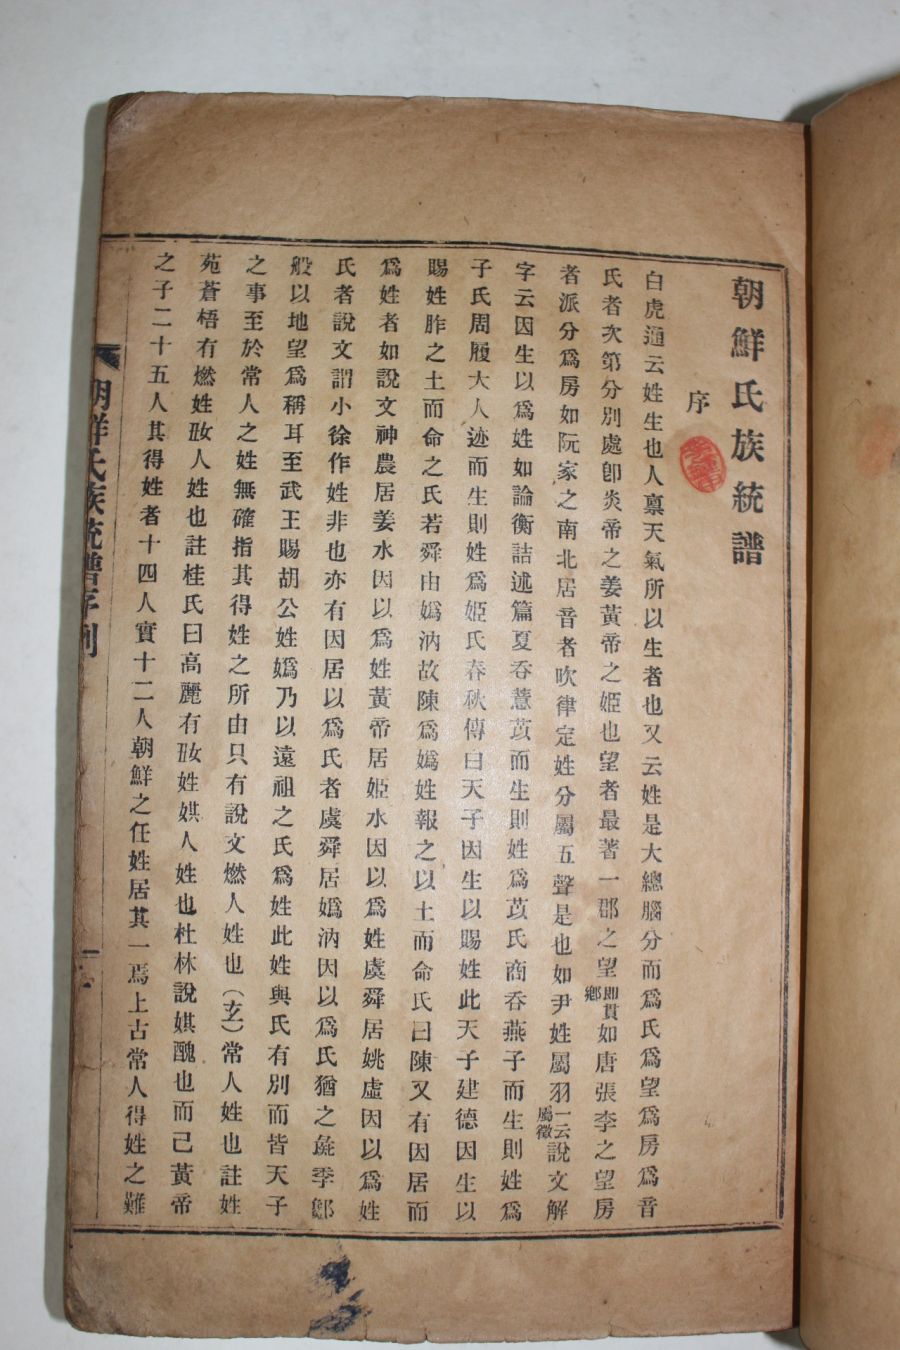 朝鮮氏族統譜
序
白虎通云姓生也人禀天氣所以生者也又云姓是大總腦分而爲氏爲望爲房爲音
氏者次第分別處卽炎帝之姜黃帝之姬也望者最著一郡之望即貫鄕如唐張李之望房
者派分爲房如阮家之南北居音者吹律定姓分屬五聲是也如尹姓屬羽一云屬徵說文解
字云因生以爲姓如論衡詰述篇夏吞薏苡而生則姓爲苡氏商吞燕子而生則姓爲
子氏周履大人迹而生則姓爲姬氏春秋傳曰天子因生以賜姓此天子建德因生以
賜姓胙之土而命之氏若舜由嬀汭故陳爲嬀姓報之以土而命氏曰陳又有因居而
爲姓者如說文神農居姜水因以爲姓黃帝居姬水因以爲姓虞舜居姚虛因以爲姓
氏者說文謂小徐作姓非也亦有因居以爲氏者虞舜居嬀汭因以爲氏猶之彘季鄒
般以地望爲稱耳至武王賜胡公姓嬀乃以遠祖之氏爲姓此姓與氏有別而皆天子
之事至於常人之姓無確指其得姓之所由只有說文燃人姓也（玄）常人姓也註姓
苑蒼梧有燃姓㚢人姓也註桂氏曰高麗有㚢姓娸人姓也杜林說娸醜也而已黃帝
之子二十五人其得姓者十四人實十二人朝鮮之任姓居其一焉上古常人得姓之難
朝鮮氏族統譜序例
一